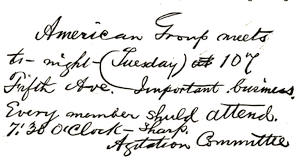 American Group meets
to-night (Tuesday) at 107
Fifth Ave. Important business.
Every member shuld attend.
7:30 O'Clock – Sharp.
Agitation Committee